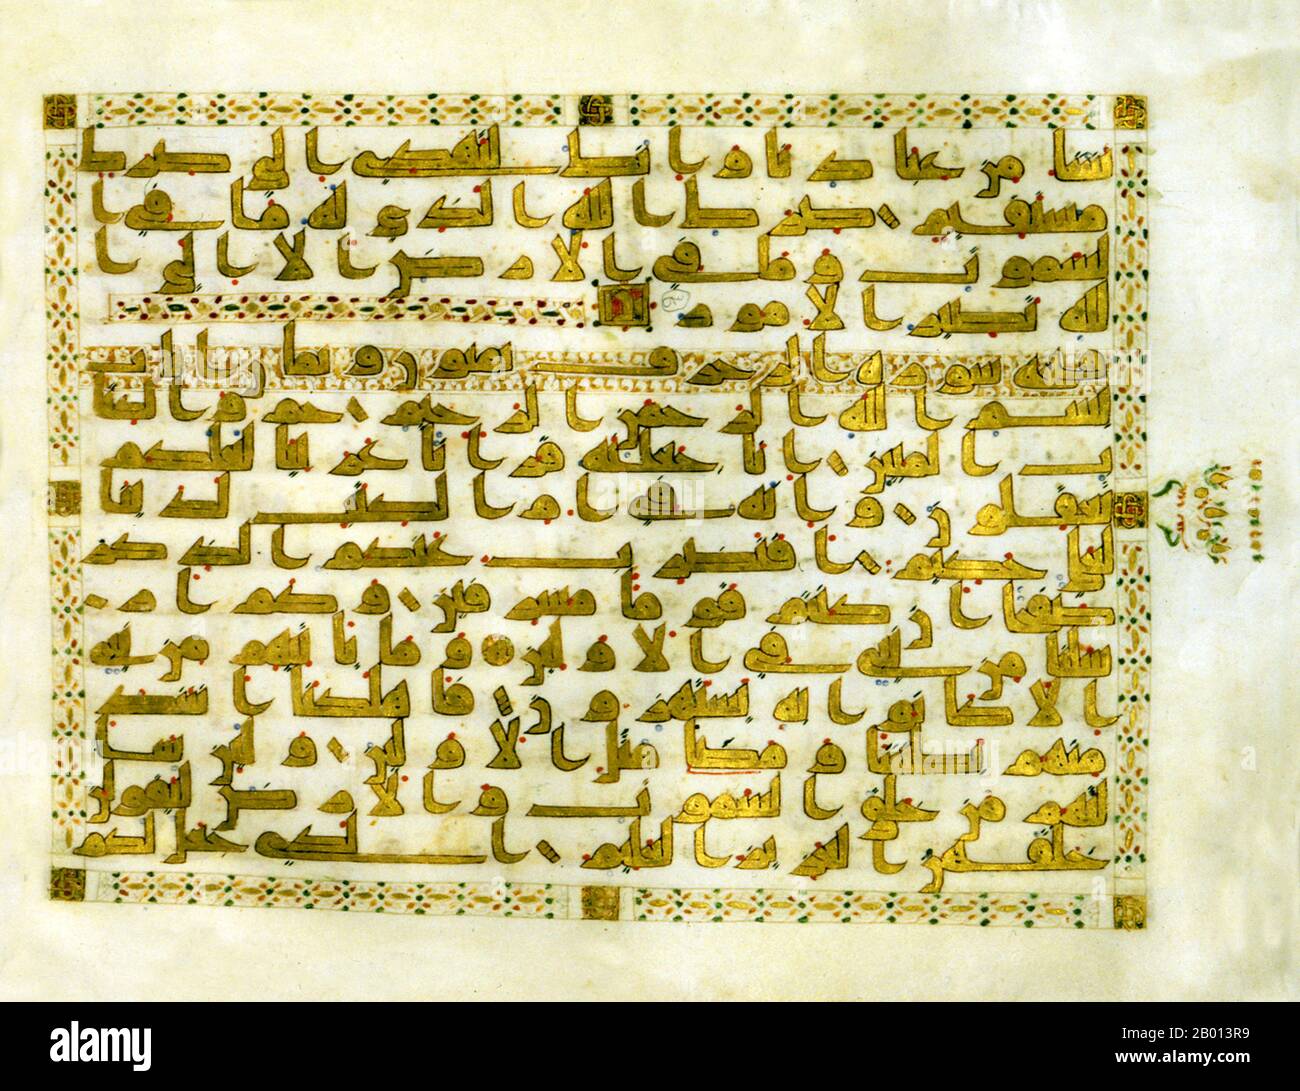 نشا من عبادنا وانك لتهدى الى صرط
مستقيم صرط الله الذى له ما فى ا
لسموت وما فى الارض الا الى ا
لله تصير الامور
سورة الزخرف
بسم الله الرحمن الرحيم حم والكتا
ب المبين انا جعلنه قرانا عربيا لعلكم
تعقلون وانه فى ام الكتب لدينا
لعلى حكيم افنضرب عنكم الذكر
صفحا ان كنتم قوما مسرفين وكم ار
سلنا من نبى فى الاولين وما ياتيهم من نبى
الا كانوا به يستهزون فاهلكنا اشد
منهم بطشا ومضى مثل الاولين ولئن سا
لتهم من خلق السموت والارض ليقولن
خلقهن العزيز العليم الذى جعل لكم
alamy
Image ID: 2B013R9
www.alamy.com